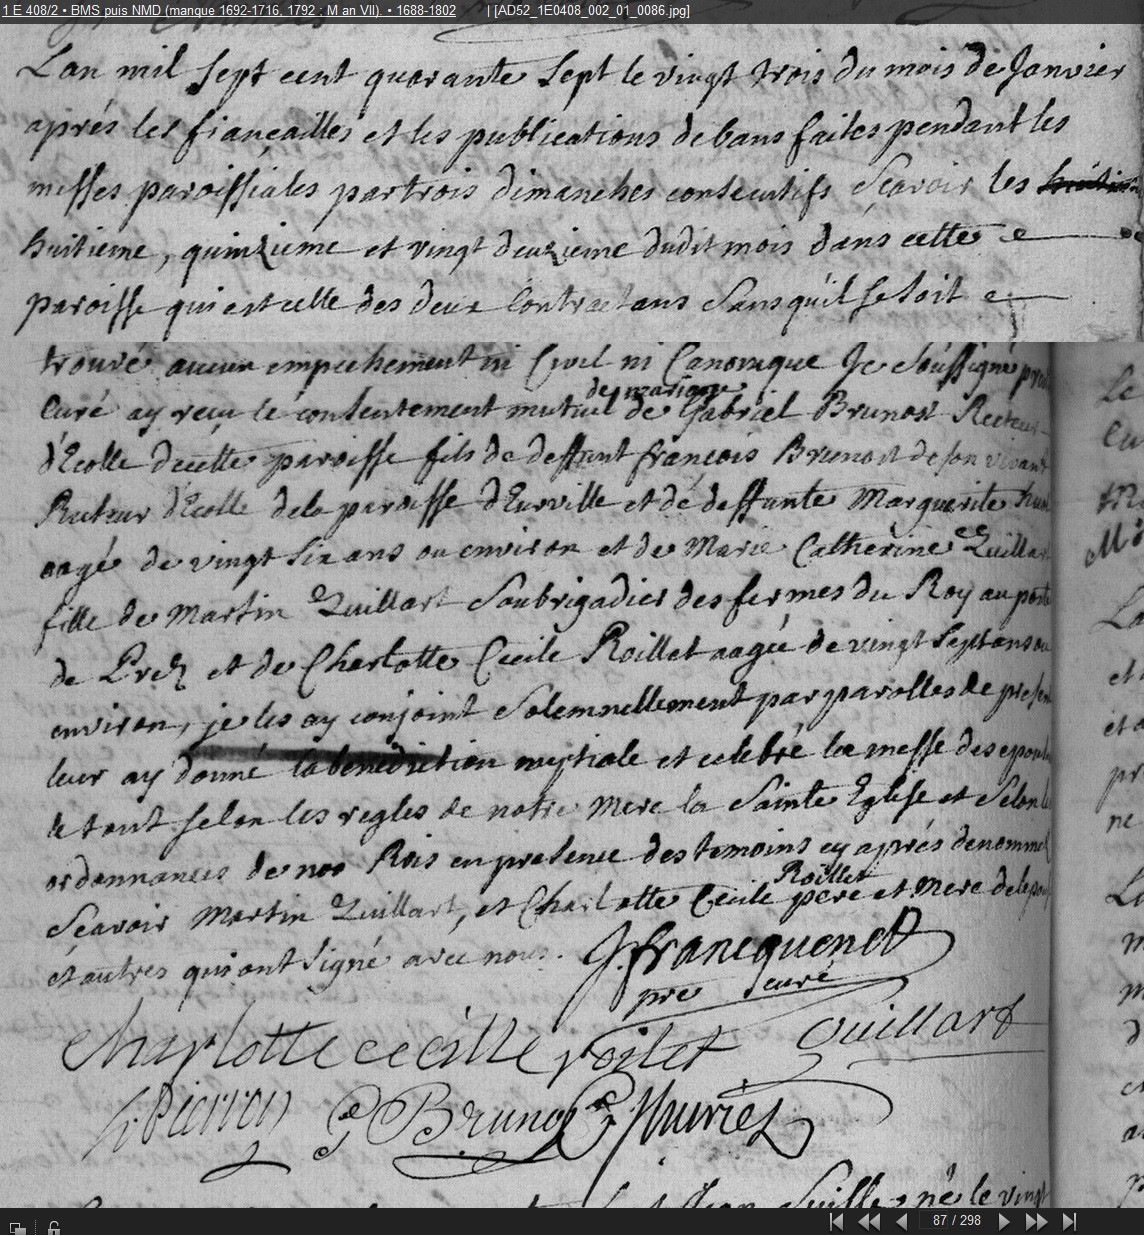 1 E 408/2 • BMS puis NMD (manque 1692-1716, 1792 ; M an VII). • 1688-1802 | [AD52_1E0408_002_01_0086.jpg]
L'an mil sept cent quarante sept le vingt trois du mois de Janvier
aprés les fiançailles et les publications de bans faites pendant les
messes paroissiales par trois dimanches consecutifs Sçavoir les
huitieme, quinzieme et vingt deuxieme dudit mois dans cette
paroisse qui est celle des deux Contractans sans qu'il se soit
trouvé aucun empechement ni Civil ni Canonique Je Soussigné
Curé ay reçu le consentement mutuel de mariage de Gabriel Brunost Recteur
d'Ecolle de cette paroisse fils de deffunt françois Brunost de son vivant
Recteur d'Ecolle de la paroisse d'Eurville et de deffunte Marguerite
aagé de vingt six ans ou environ et de Marie Catherine Quillart
fille de Martin Quillart Soubrigadier des fermes du Roy au poste
de Prez et de Charlotte Cecile Roillet aagée de vingt sept ans ou
environ, je les ay conjoint Solemnellement par parolles de present
leur ay donné la benediction nuptiale et celebré la messe des epoux
le tout selon les regles de notre Mere la Sainte Eglise et Selon les
ordonnances de nos Rois en presence des temoins cy aprés denommés
Sçavoir Martin Quillart, et Charlotte Cecile Roillet pere et Mere de
et autres qui ont signé avec nous.
J. francquenot
pre curé
Charlotte cecille roilet Quillart
Pierron G Brunost
87 / 298